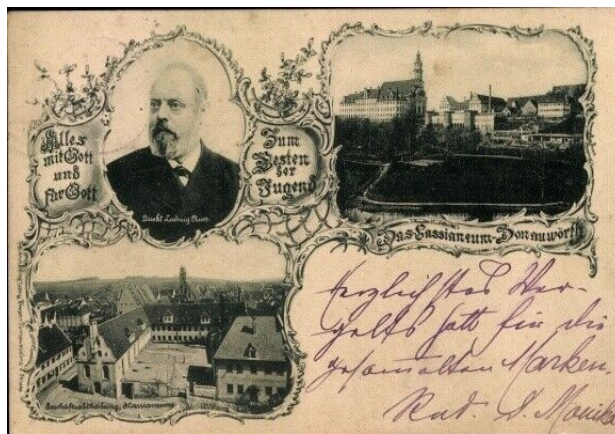 Alles
mit Gott
und
für Gott
Zum
Besten
der
Jugend
Direkt. Ludwig Auer
Das Cassianeum-Donauwörth
Geschäftsabtheilung, Cassianeum
Herzlichstes Ver-
gelts Gott für die
gesammelten Marken.
Red. d. Monika